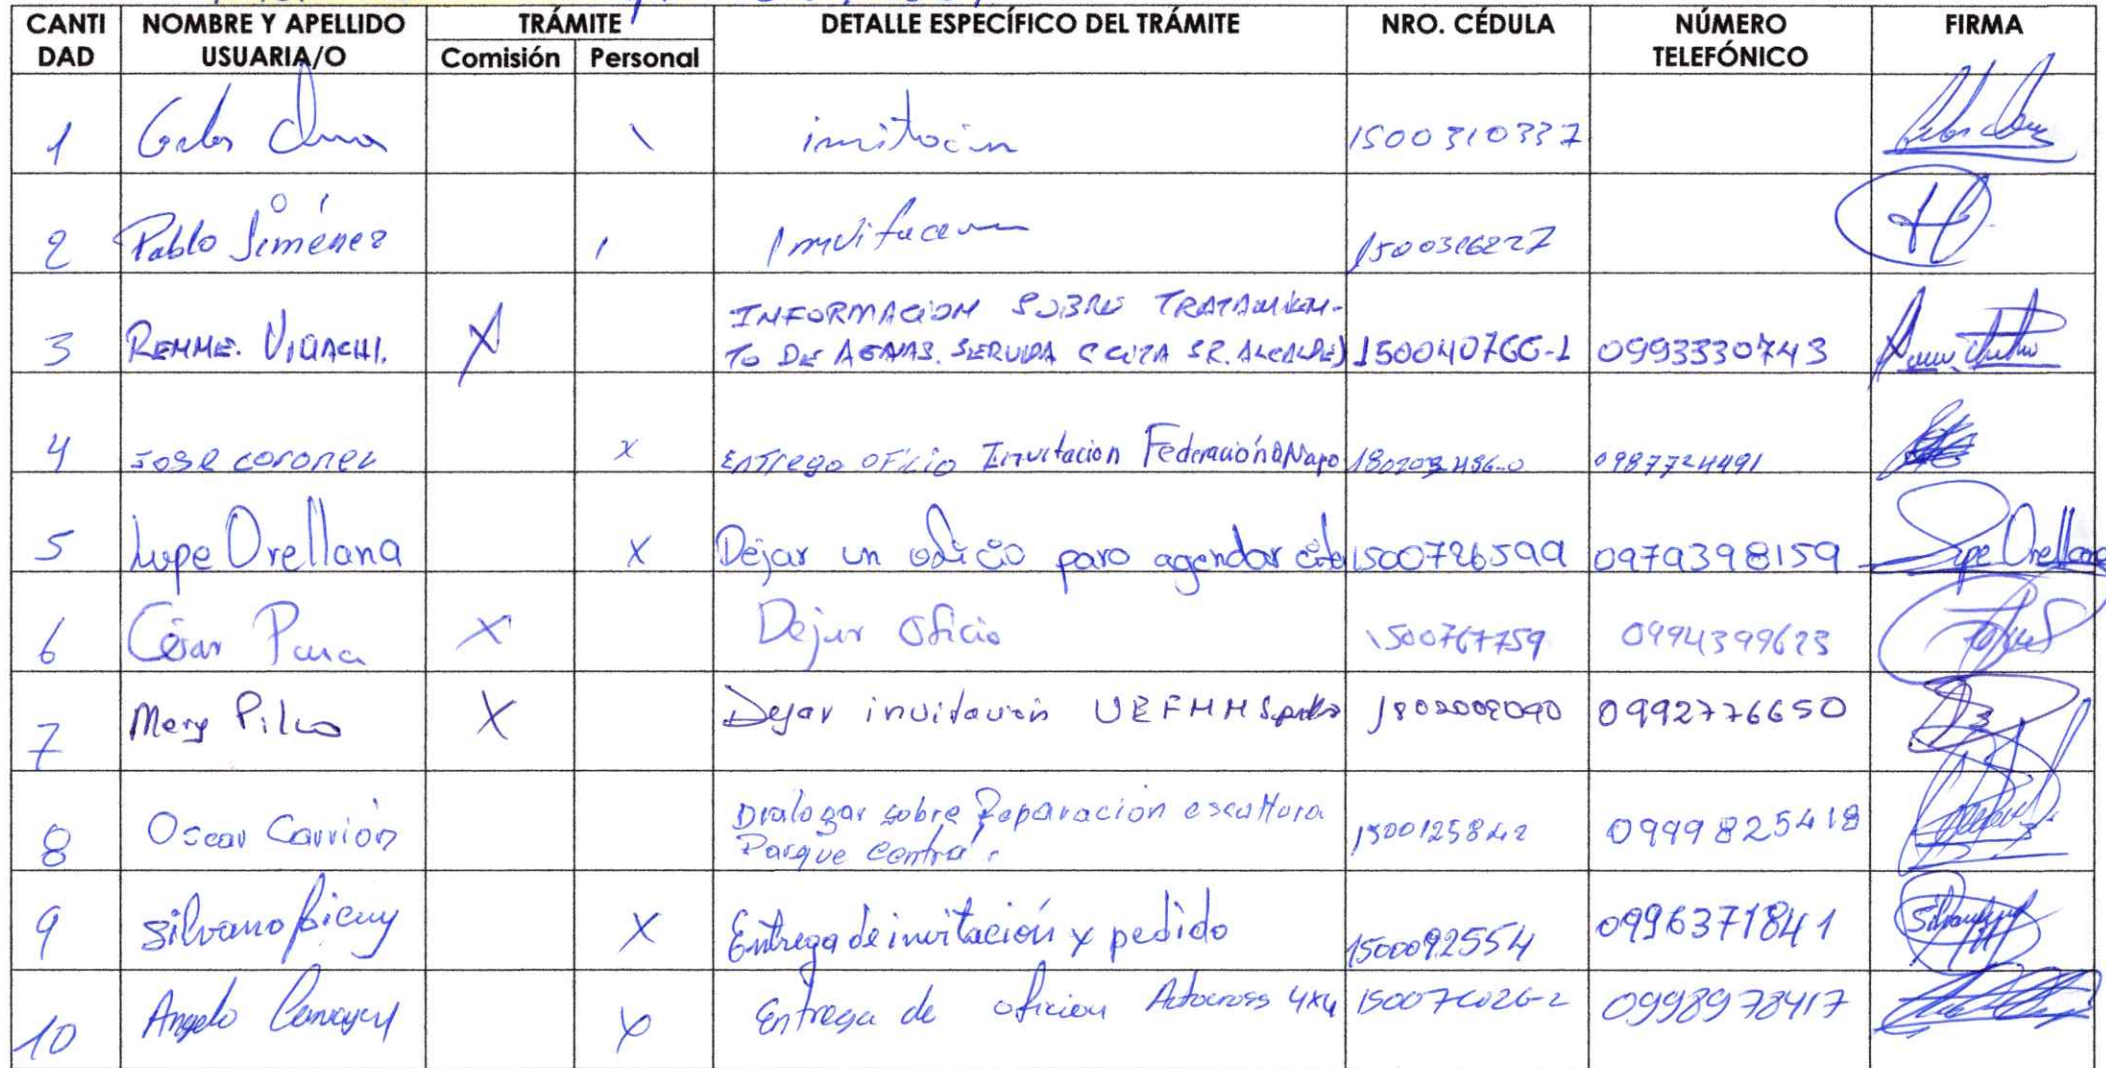 CANTI DAD NOMBRE Y APELLIDO USUARIA/O TRÁMITE Comisión Personal DETALLE ESPECÍFICO DEL TRÁMITE NRO. CÉDULA NÚMERO TELEFÓNICO FIRMA
1 1500310337
2 Pablo Jiménez 1500316227
3 REMME. X INFORMACION SOBRE TRATAMIEN-
TO DE AGUAS. SERVIDA (CUITA SR. ALCALDE) 150040766-1 0993330743
4 Jose coronel x Entrego oficio Invitacion Federación Napo 0987724491
5 Lupe Orellana X Dejar un oficio para agendar cita 1500726599 0979398159 Lupe Orellana
6 César X Dejar Oficio 1500767759 0994399623
7 Mery Pilco X Dejar invitación UEFMM 1802002090 0992776650
8 Oscar Carrión Dialogar sobre Reparación escultura
Parque Central. 1500125842 0999825418
9 Silvano X Entrega de invitación y pedido 1500092554 0996371841
10 Angelo X Entrega de oficion Autocross 4x4 0998978417